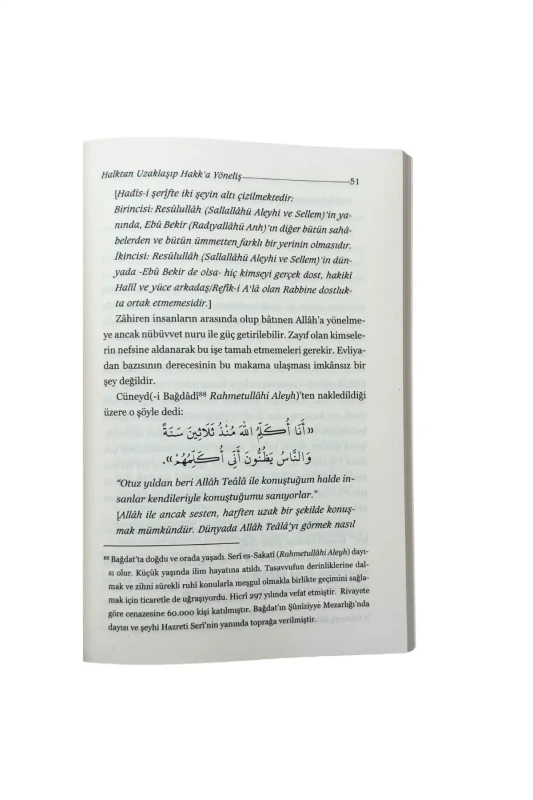 Halktan Uzaklaşıp Hakk'a Yöneliş 51
[Hadis-i şerîfte iki şeyin altı çizilmektedir:
Birincisi: Resûlullâh (Sallallâhü Aleyhi ve Sellem)'in ya-
nında, Ebû Bekir (Radıyallâhü Anh)'ın diğer bütün sahâ-
belerden ve bütün ümmetten farklı bir yerinin olmasıdır.
İkincisi: Resûlullâh (Sallallâhü Aleyhi ve Sellem)'in dün-
yada -Ebû Bekir de olsa- hiç kimseyi gerçek dost, hakiki
Halîl ve yüce arkadaş/Refîk-i A'lâ olan Rabbine dostluk-
ta ortak etmemesidir.]
Zâhiren insanların arasında olup bâtınen Allâh'a yönelme-
ye ancak nübüvvet nuru ile güç getirilebilir. Zayıf olan kimse-
lerin nefsine aldanarak bu işe tamah etmemeleri gerekir. Evliya-
dan bazısının derecesinin bu makama ulaşması imkânsız bir
şey değildir.
Cüneyd(-i Bağdâdî⁸⁸ Rahmetullâhi Aleyh)'ten nakledildiği
üzere o şöyle dedi:
«أَنَا أُكَلِّمُ اللّٰهَ مُنْذُ ثَلَاثِينَ سَنَةً
وَالنَّاسُ يَظُنُّونَ أَنِّي أُكَلِّمُهُمْ».
"Otuz yıldan beri Allâh Teâlâ ile konuştuğum halde in-
sanlar kendileriyle konuştuğumu sanıyorlar."
[Allâh ile ancak sesten, harften uzak bir şekilde konuş-
mak mümkündür. Dünyada Allâh Teâlâ'yı görmek nasıl
⁸⁸ Bağdat'ta doğdu ve orada yaşadı. Serî es-Sakatî (Rahmetullâhi Aleyh) dayı-
sı olur. Küçük yaşında ilim hayatına atıldı. Tasavvufun derinliklerine dal-
mak ve zihni sürekli ruhî konularla meşgul olmakla birlikte geçimini sağla-
mak için ticaretle de uğraşıyordu. Hicrî 297 yılında vefat etmiştir. Rivayete
göre cenazesine 60.000 kişi katılmıştır. Bağdat'ın Şûniziyye Mezarlığı'nda
dayısı ve şeyhi Hazreti Serî'nin yanında toprağa verilmiştir.